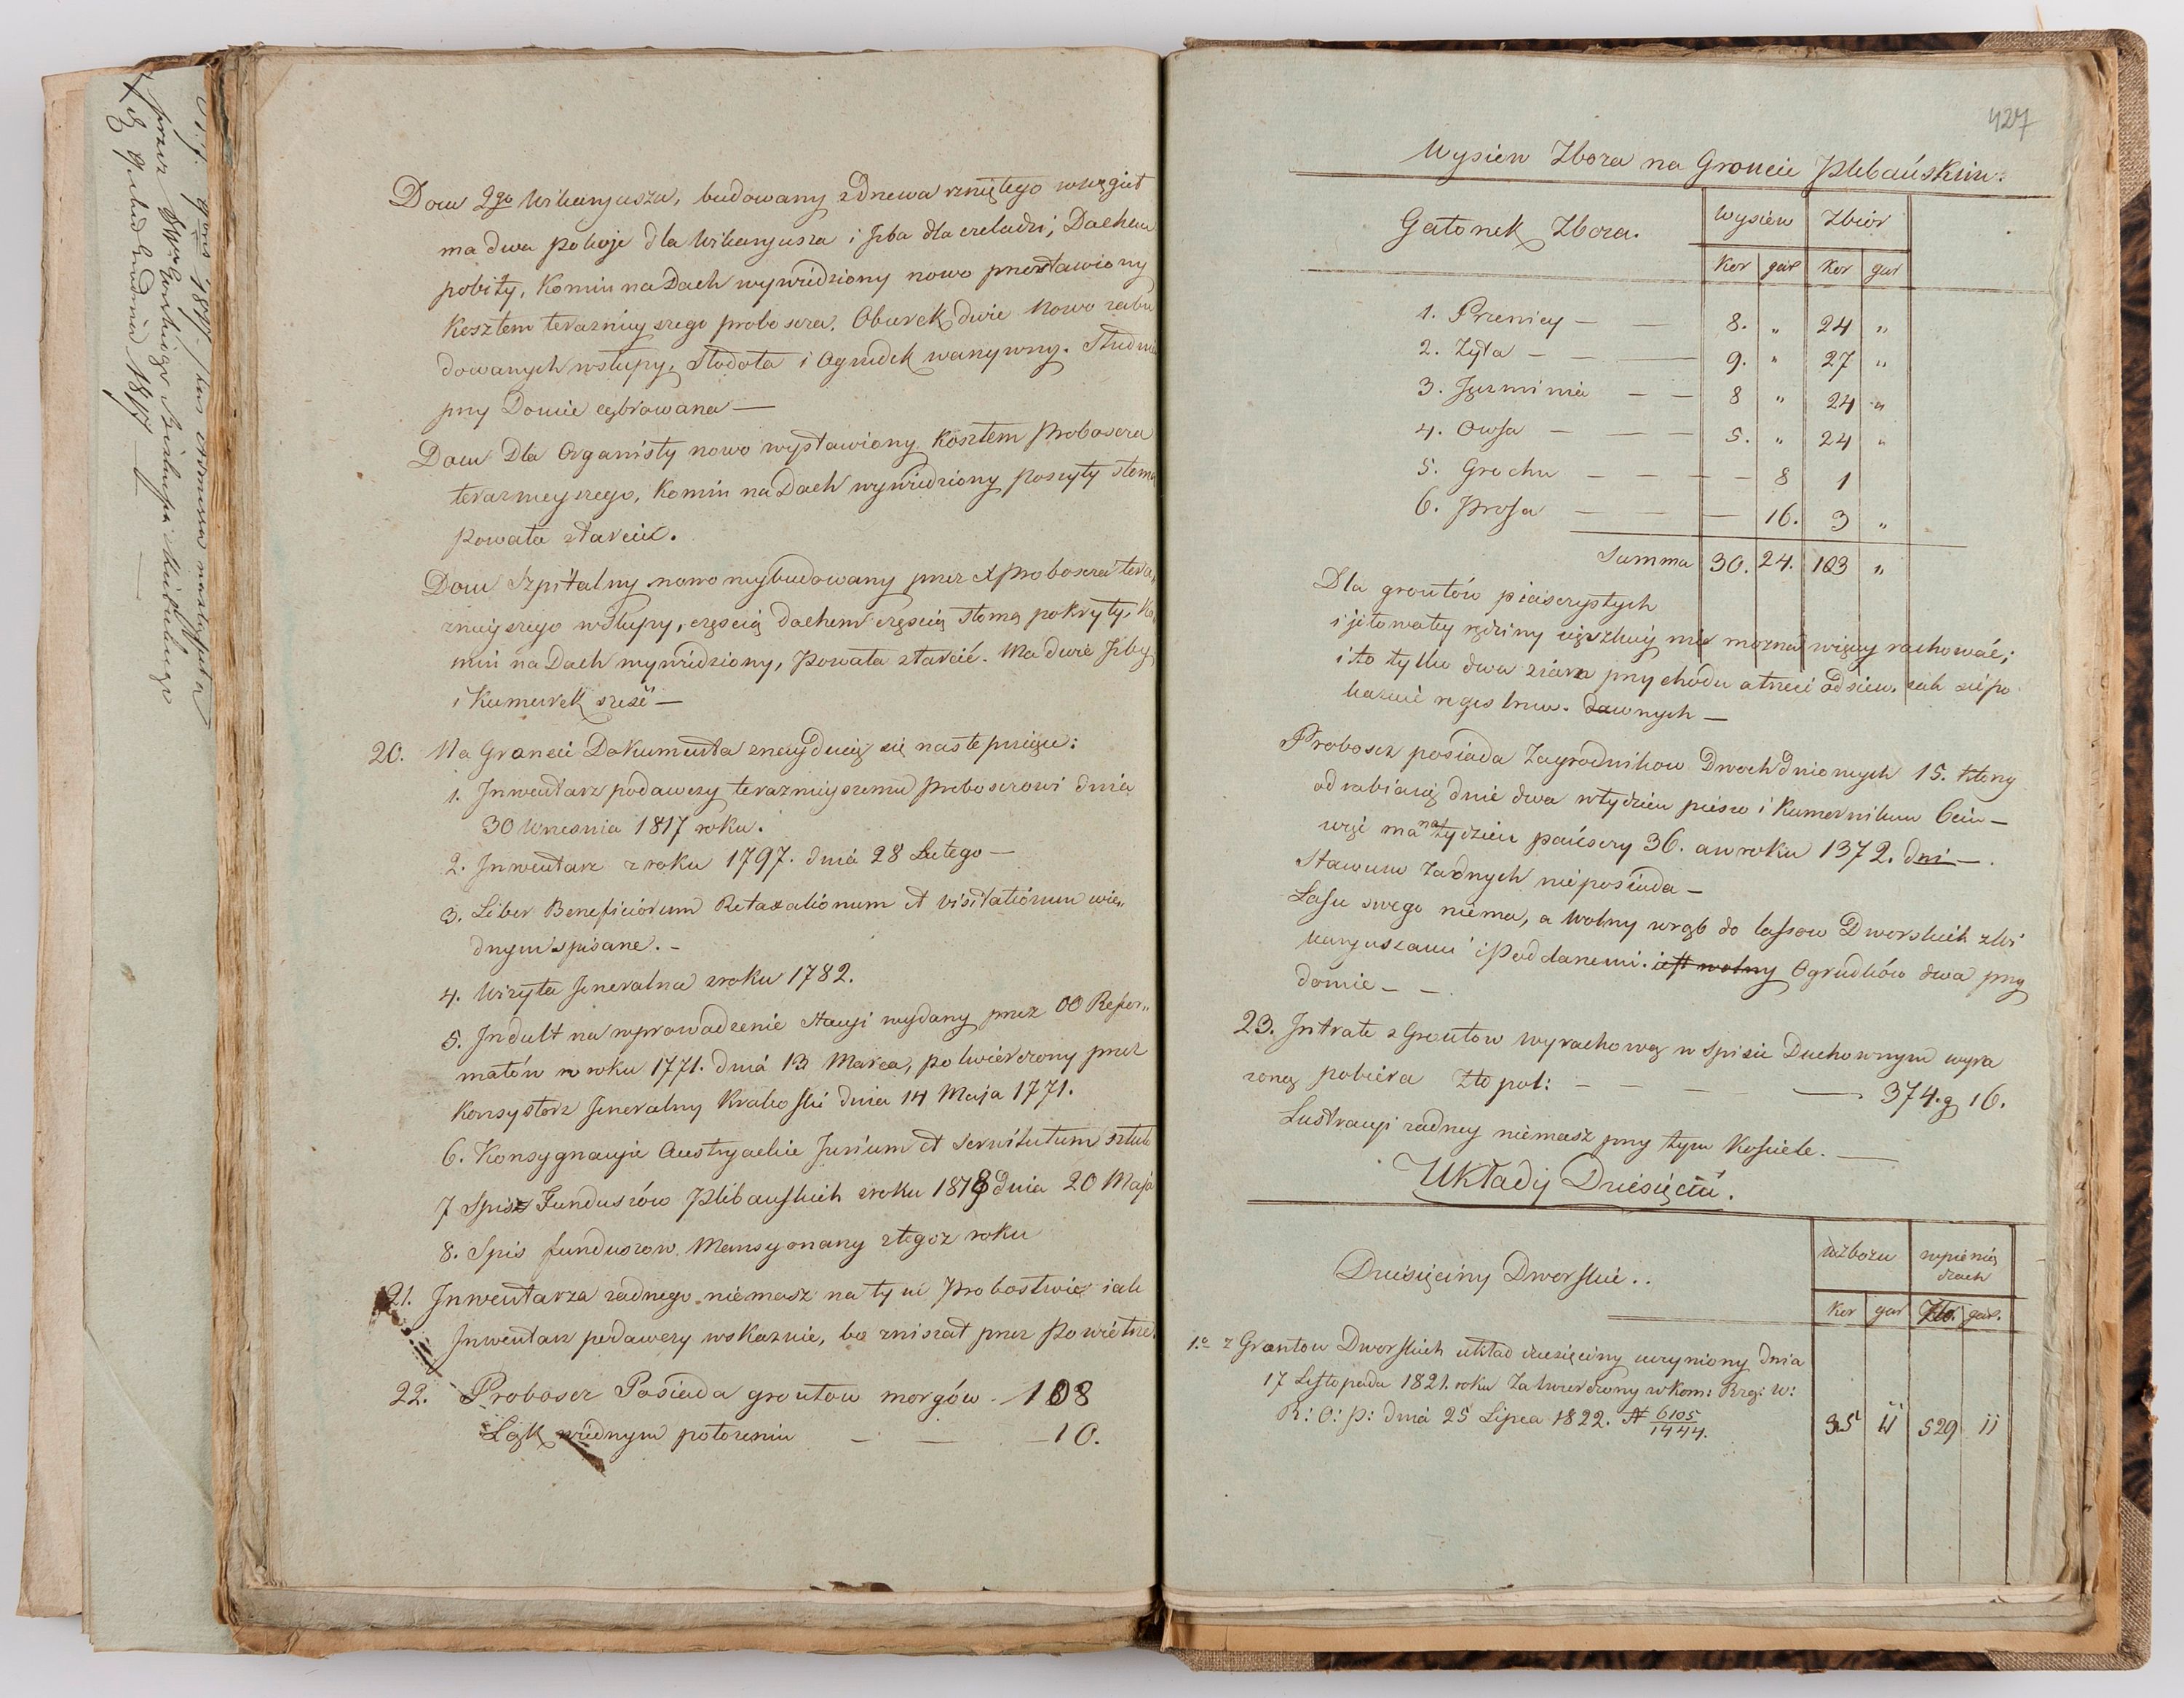 Dom 2go Wikaryusza, budowany z drzewa rzniętego w węgieł
ma dwa pokoje dla Wikaryusza i Jzba dla czeladzi; Dachem
pobity, Komin na Dach wywiedziony nowo przestawiony
Kosztem teraznieyszego proboszcza. Oburek dwie Nowo zabu
dowanych w słupy, Stodoła i Ogrudek warzywny. Studnia
przy Domie cębrowana —
Dom Dla Organisty nowo wystawiony Kosztem Proboszcza
teraznieyszego, Komin na Dach wywiedziony poszyty słomą
Powała z tarcic.
Dom Szpitalny nowo wybudowany przez X Proboszcza tera„
znieyszego w słupy, częscią dachem częscią słomą pokryty, Ko„
min na Dach wywiedziony, Powała z tarcic. Ma dwie Jzby
i Kumurek sześć —
20. Na Gruncie Dokumenta znayduią się nastepuiące:
1. Jnwentarz podawczy teraznieyszemu Proboszczowi dnia
30 Wrzesnia 1817 roku.
2. Jnwentarz z roku 1797. dnia 28 Lutego —
3. Liber Beneficiorum Retaxationum et visitationum wie„
dnym spisane. –
4. Wizyta Jeneralna z roku 1782.
5. Jndult na wprowadzenie Stacyi wydany przez OO Refor„
matów w roku 1771. dnia 13 Marca, potwierdzony przez
Konsystorz Jeneralny Krakoski dnia 14 Maja 1771.
6. Konsygnacyie Austryackie Jurium et Servitutum sztuk
7 Spis Funduszów Plibanskich z roku 1818 dnia 20 Maja
8. Spis funduszow Mansyonary z tegoz roku
21. Jnwentarza zadnego niemasz na tym Probostwie iak
Jnwentarz podawczy wskazuie, bo zniszał przez Powietrze.
22. Proboszcz Posiada grontow morgów — 108
Łąk w iednym położeniu — — — 10.
427
Wysiew Zboza na Groncie Plibańskim:
Gatonek Zboza.
Wysiew Zbiór
Kor gar Kor gar
1. Przenicy — — 8. „ 24 „
2. Zyta — — — 9. „ 27 „
3. Jęczmienia — — 8 „ 24 „
4. Owsa — — — 5. „ 24 „
5. Grochu — — — — 8 1
6. Prosa — — — 16. 3 „
Summa 30. 24. 103 „
Dla grontów piasczystych
i jełowatey rędziny cięszkiey nie mozna więcey rachować;
i to tylko dwa ziarna przychodu a trzeci odsiew. iak sie po
kazuie regestrów. dawnych —
Proboszcz posiada Zagrodnikow Dwoch dniowych 15. ktorzy
odrabiaią dnie dwa w tydzień pieszo i Kumernikow 6ciu —
więc ma na tydzień pańsczy 36. a w roku 1372. dni —.
Stawuw Zadnych nieposiada —
Lasu swego niema, a wolny wrąb do lassow Dworskich z Wi
karyuszami i Poddanemi. iest wolny Ogrudków dwa przy
domie — —
23. Jntrate z Grontow wyrachowaną w Spisie Duchownym wyra
zoną pobiera Zło pol: — — — — 374. g 16.
Lustracyi zadney niemasz przy tym Kosciele. —
Układy Dziesięciń.
Dziesięciny Dworskie..
w zbozu w pienią
dzach
Kor gar Zło. gar.
1.o z Grontow Dworskich układ dziesięciny uczyniony Dnia
17 Listopada 1821. roku Zatwierdzony w Kom: Rzą: W:
R: O: P: dnia 25 Lipca 1822. N 6105/1444. 35 11 529 11